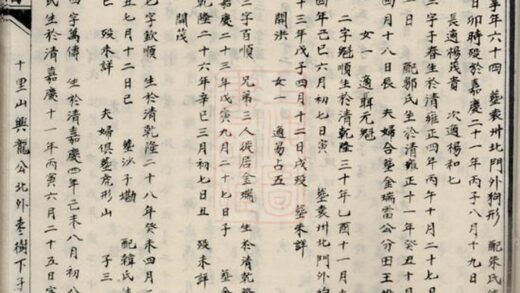 享年六十四 葬袁州北門外狗形 配朱氏
日卯時歿於嘉慶二十一年丙子八月十九日
長適楊茂貴 次適楊和七
三字子春生於清雍正四年丙午十月二十七
配郭氏生於清雍正十一年癸丑十
四月十八日辰 夫婦合葬金瑞雷公分田王
女一 適聶元魁
二字魁順生於清乾隆三十年乙酉十一月
四年己巳六月初七日寅 葬袁州北門外狗
十三年戊子四月十二日戌歿 葬未詳
開洪 女一 適易占五
二字百順 兄弟三人後居金瑞 生於清乾隆
嘉慶二十三年戊寅九月二十七日子 葬金
乾隆二十六年辛巳三月初七日丑 歿未詳
開茂
七字欽順 生於清乾隆二十八年癸未四月
丑七月十二日巳 葬沙子 配韓氏
歿未詳 夫婦俱葬虎形山 子三
四字萬傳 生於清嘉慶四年己未八月初八
氏生於清嘉慶十一年丙寅六月二十五日
十里山興龍公北外枣樹下子